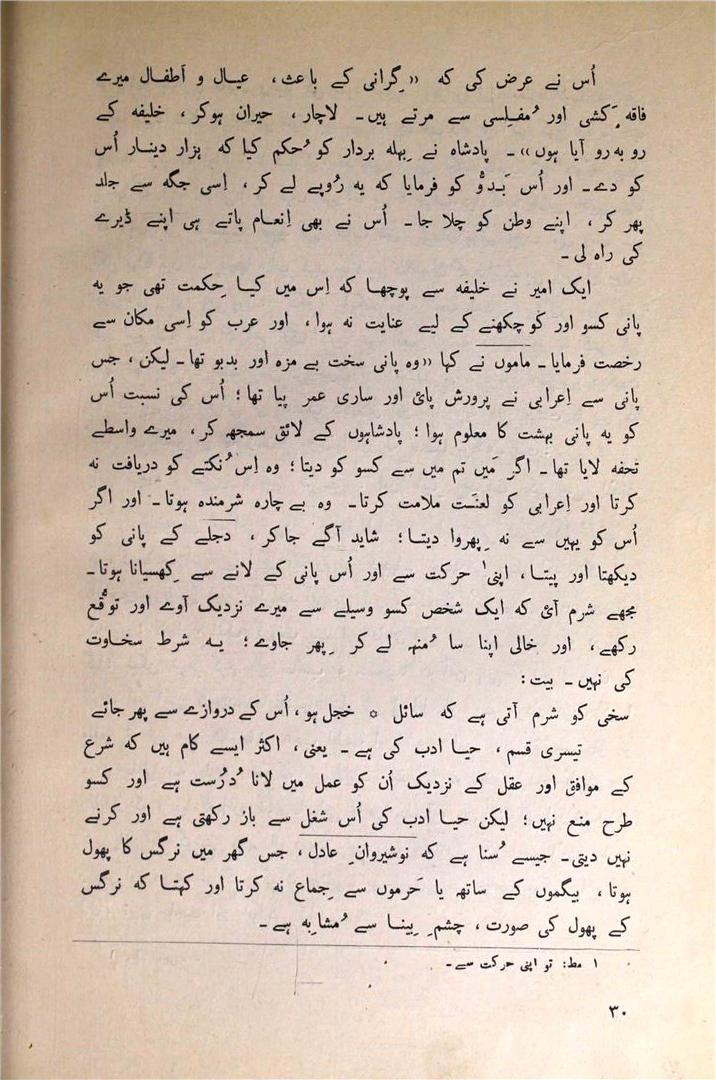 اُس نے عرض کی کہ «گِرانی کے باعث، عیال و اَطفال میرے
فاقہ کَشی اور مُفلِسی سے مرتے ہیں۔ لاچار، حیران ہوکر، خلیفہ کے
رو بہ رو آیا ہوں»۔ پادشاہ نے بِہلہ بردار کو حُکم کیا کہ ہزار دینار اُس
کو دے۔ اور اُس بَدوُّ کو فرمایا کہ یہ رُوپے لے کر، اِسی جگہ سے جلد
پھر کر، اپنے وطن کو چلا جا۔ اُس نے بھی اِنعام پاتے ہی اپنے ڈیرے
کی راہ لی۔
ایک امیر نے خلیفہ سے پوچھا کہ اِس میں کیا حِکمت تھی جو یہ
پانی کسو اور کو چکھنے کے لیے عنایت نہ ہوا، اور عرب کو اِسی مکان سے
رخصت فرمایا۔ ماموں نے کہا «وہ پانی سخت بے مزہ اور بدبو تھا۔ لیکن، جس
پانی سے اِعرابی نے پرورش پائ اور ساری عمر پیا تھا؛ اُس کی نسبت اُس
کو یہ پانی بہشت کا معلوم ہوا؛ پادشاہوں کے لائق سمجھ کر، میرے واسطے
تحفہ لایا تھا۔ اگر مَیں تم میں سے کسو کو دیتا؛ وہ اِس نُکتے کو دریافت نہ
کرتا اور اِعرابی کو لعنَت ملامت کرتا۔ وہ بے چارہ شرمندہ ہوتا۔ اور اگر
اُس کو یہیں سے نہ پِھروا دیتا؛ شاید آگے جاکر، دجلے کے پانی کو
دیکھتا اور پیتا، اپنی¹ حرکت سے اور اُس پانی کے لانے سے کِھسیانا ہوتا۔
مجھے شرم آئ کہ ایک شخص کسو وسیلے سے میرے نزدیک آوے اور توقُّع
رکھے، اور خالی اپنا سا مُنہ لے کر پِھر جاوے؛ یہ شرط سخاوت
کی نہیں۔ بیت:
سخی کو شرم آتی ہے کہ سائل ٭ خجل ہو، اُس کے دروازے سے پھر جائے
تیسری قسم، حیا ادب کی ہے۔ یعنی، اکثر ایسے کام ہیں کہ شرع
کے موافق اور عقل کے نزدیک اُن کو عمل میں لانا دُرُست ہے اور کسو
طرح منع نہیں؛ لیکن حیا ادب کی اُس شغل سے باز رکھتی ہے اور کرنے
نہیں دیتی۔ جیسے سُنا ہے کہ نوشیروانِ عادل، جس گھر میں نرگس کا پھول
ہوتا، بیگموں کے ساتھ یا حَرموں سے جِماع نہ کرتا اور کہتا کہ نرگس
کے پھول کی صورت، چشمِ بِینا سے مُشابِہ ہے۔
۱ مط: تو اپنی حرکت سے۔
۳۰